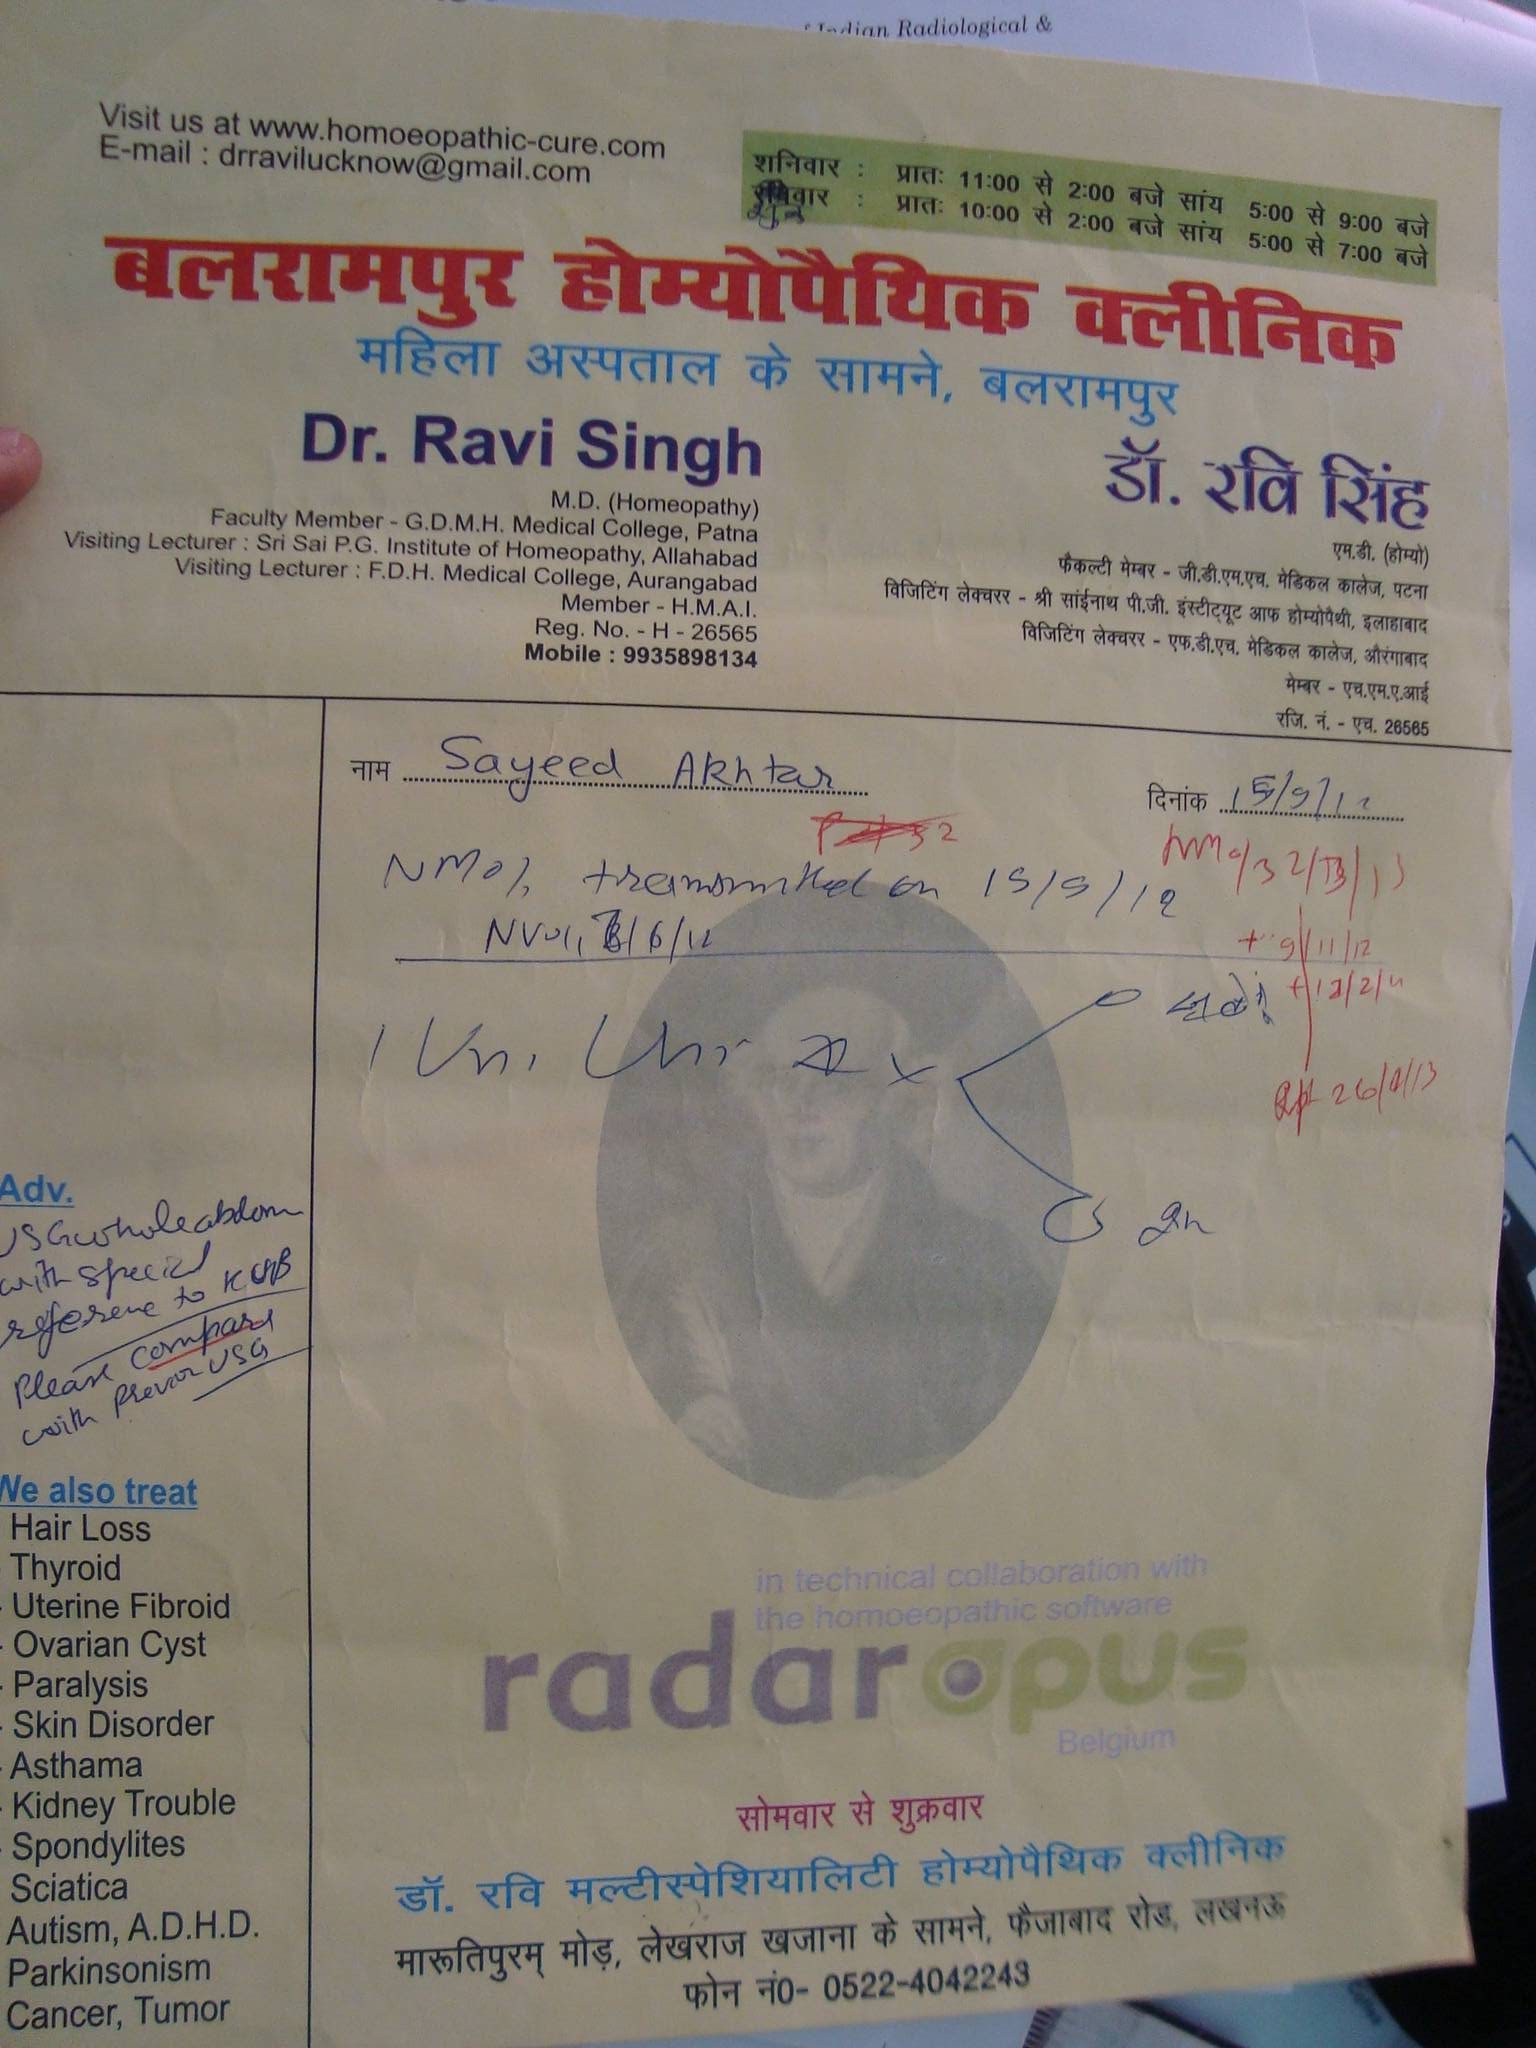 Indian Radiological &
Visit us at www.homoeopathic-cure.com
E-mail : drravilucknow@gmail.com
शनिवार : प्रातः 11:00 से 2:00 बजे सांय 5:00 से 9:00 बजे
: प्रातः 10:00 से 2:00 बजे सांय 5:00 से 7:00 बजे
बलरामपुर होम्योपैथिक क्लीनिक
महिला अस्पताल के सामने, बलरामपुर
Dr. Ravi Singh
M.D. (Homeopathy)
Faculty Member - G.D.M.H. Medical College, Patna
Visiting Lecturer : Sri Sai P.G. Institute of Homeopathy, Allahabad
Visiting Lecturer : F.D.H. Medical College, Aurangabad
Member - H.M.A.I.
Reg. No. - H - 26565
Mobile : 9935898134
डॉ. रवि सिंह
एम.डी. (होम्यो)
फैकल्टी मेम्बर - जी.डी.एम.एच. मेडिकल कालेज, पटना
विजिटिंग लेक्चरर - श्री सांईनाथ पी.जी. इंस्टीट्यूट आफ होम्योपैथी, इलाहाबाद
विजिटिंग लेक्चरर - एफ.डी.एच. मेडिकल कालेज, औरंगाबाद
मेम्बर - एच.एम.ए.आई
रजि. नं. - एच. 26565
नाम Sayeed Akhtar
दिनांक 15/9/12
transmitted on
9/11/12
26/4/13
Adv.
USG whole abdom
with special
reference to KUB
Please compare
with previous USG
We also treat
Hair Loss
- Thyroid
- Uterine Fibroid
- Ovarian Cyst
- Paralysis
- Skin Disorder
- Asthama
- Kidney Trouble
- Spondylites
Sciatica
Autism, A.D.H.D.
Parkinsonism
Cancer, Tumor
in technical collaboration with
the homoeopathic software
radaropus
Belgium
सोमवार से शुक्रवार
डॉ. रवि मल्टीस्पेशियालिटी होम्योपैथिक क्लीनिक
मारूतिपुरम् मोड़, लेखराज खजाना के सामने, फैजाबाद रोड, लखनऊ
फोन नं0- 0522-4042243